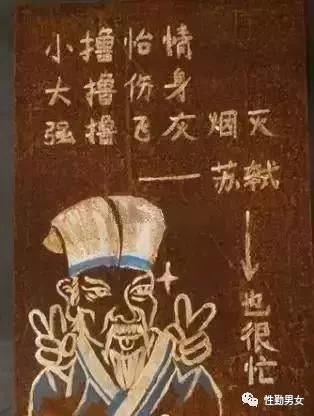 小撸怡情
大撸伤身
强撸飞灰烟灭
——苏轼
也很忙
性勤男女